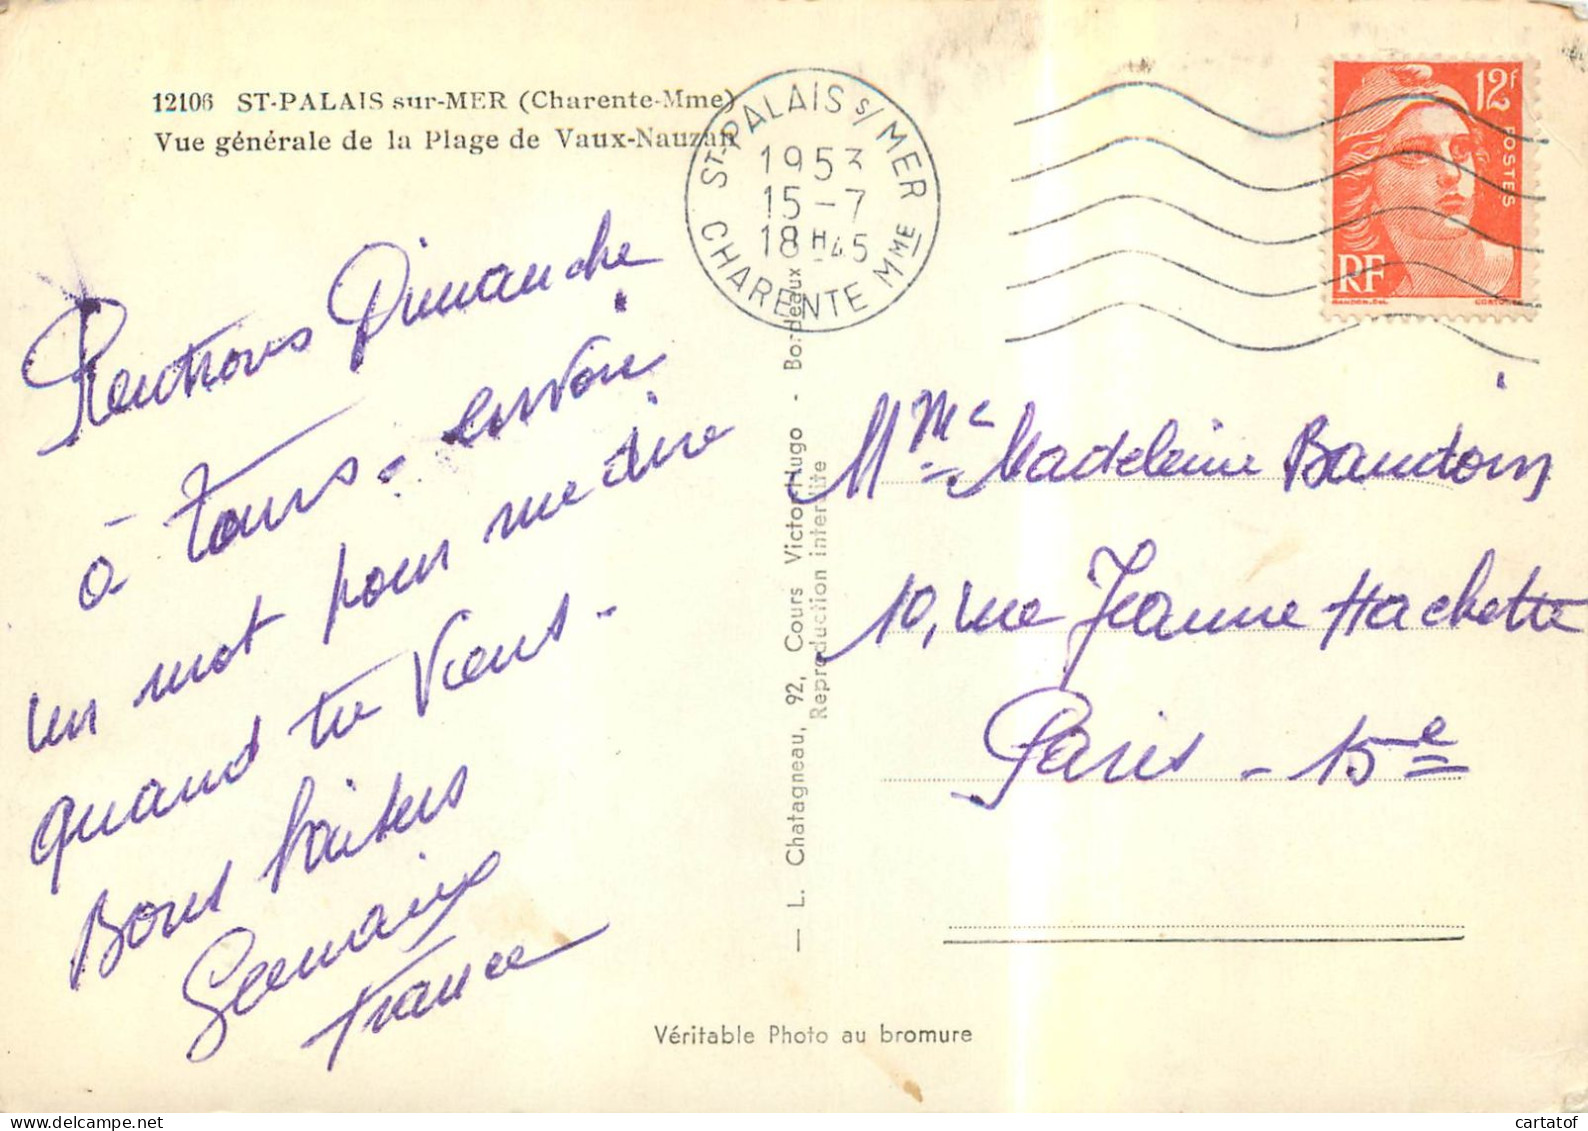 12106 ST-PALAIS sur-MER (Charente-Mme)
Vue générale de la Plage de Vaux-Nauzan
ST-PALAIS s/MER
1953
15-7
18H45
CHARENTE MME
12F
POSTES
RF
Rentrons Dimanche
à Tours - envoie
un mot pour me dire
quand tu viens -
Bons baisers
Germaine
France
L. Chatagneau, 92, Cours Victor Hugo - Bordeaux
Reproduction interdite
Mme Madeleine Baudoin
10, rue Jeanne Hachette
Paris - 15e
Véritable Photo au bromure
www.delcampe.net
cartatof